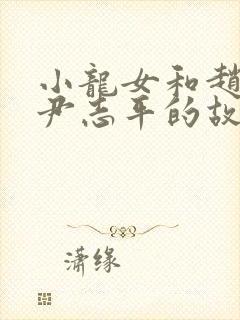 小龍女和趙
尹志平的故
潇缘